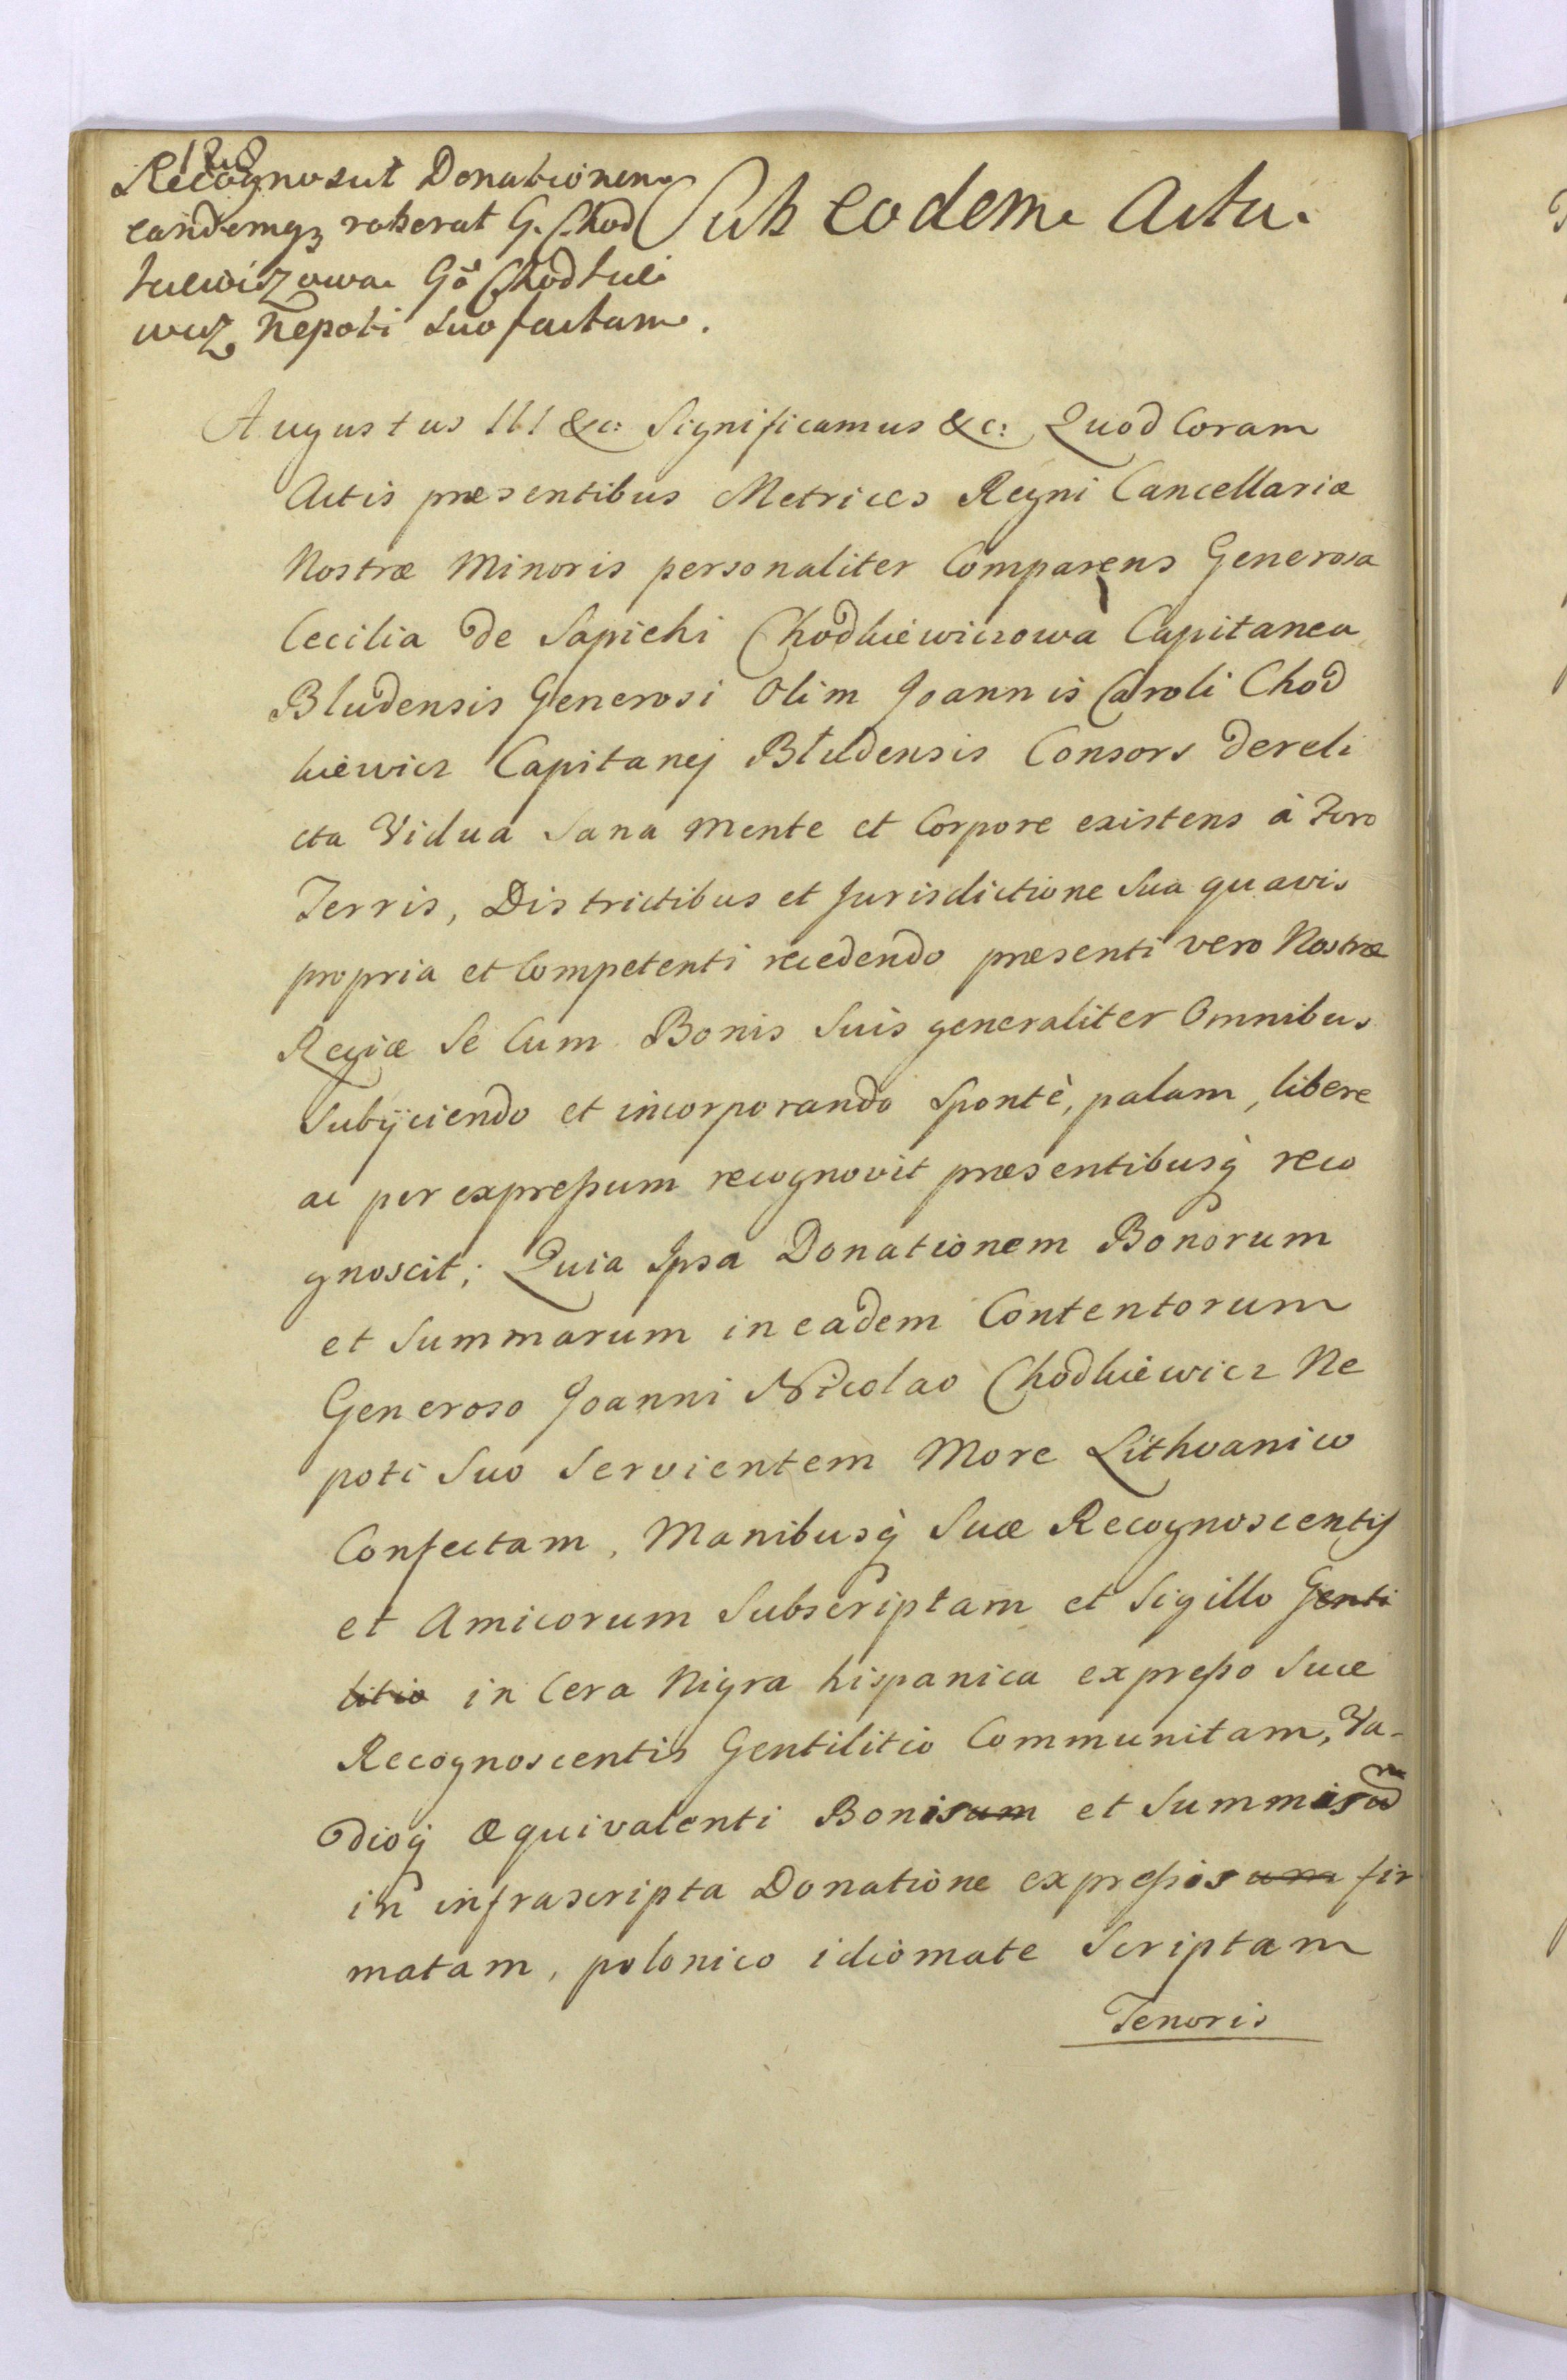 Recognoscit Donationem
eandemq3 roberat G. Chod
kiewiczowa Gō Chodkie
wicz Nepoti suo factam.
Sub eodem Actu.
Augustus III &c: Significamus &c: Quod Coram
Actis præsentibus Metrices Regni Cancellariæ
Nostræ Minoris personaliter Comparens Generosa
Cecilia de Sapiehi Chodkiewiczowa Capitanea
Bludensis Generosi Olim Joannis Caroli Chod
kiewicz Capitanej Bludensis Consors dereli
cta Vidua Sana Mente et Corpore existens à Foro
Terris, Districtibus et Jurisdictione Sua quavis
propria et Competenti recedendo præsenti vero Nostræ
Regiæ Se Cum Bonis Suis generaliter Omnibus
Subijciendo et incorporando Spontè, palam, libere
ac per expreßum recognovit præsentibusq̀ reco
gnoscit; Quia Ipsa Donationem Bonorum
et Summarum in eadem Contentorum
Generoso Joanni Nicolao Chodkiewicz Ne
poti Suo Servientem More Lithvanico
Confectam, Manibusq̀ Suæ Recognoscentis
et Amicorum Subscriptam et Sigillo Genti
litio in Cera Nigra hispanica expreßo Suæ
Recognoscentis Gentilitio Communitam, Va-
dioq̀ æquivalenti Bonis et Summis
in infrascripta Donatione expreßis fir
matam, polonico idiomate Scriptam
Tenoris